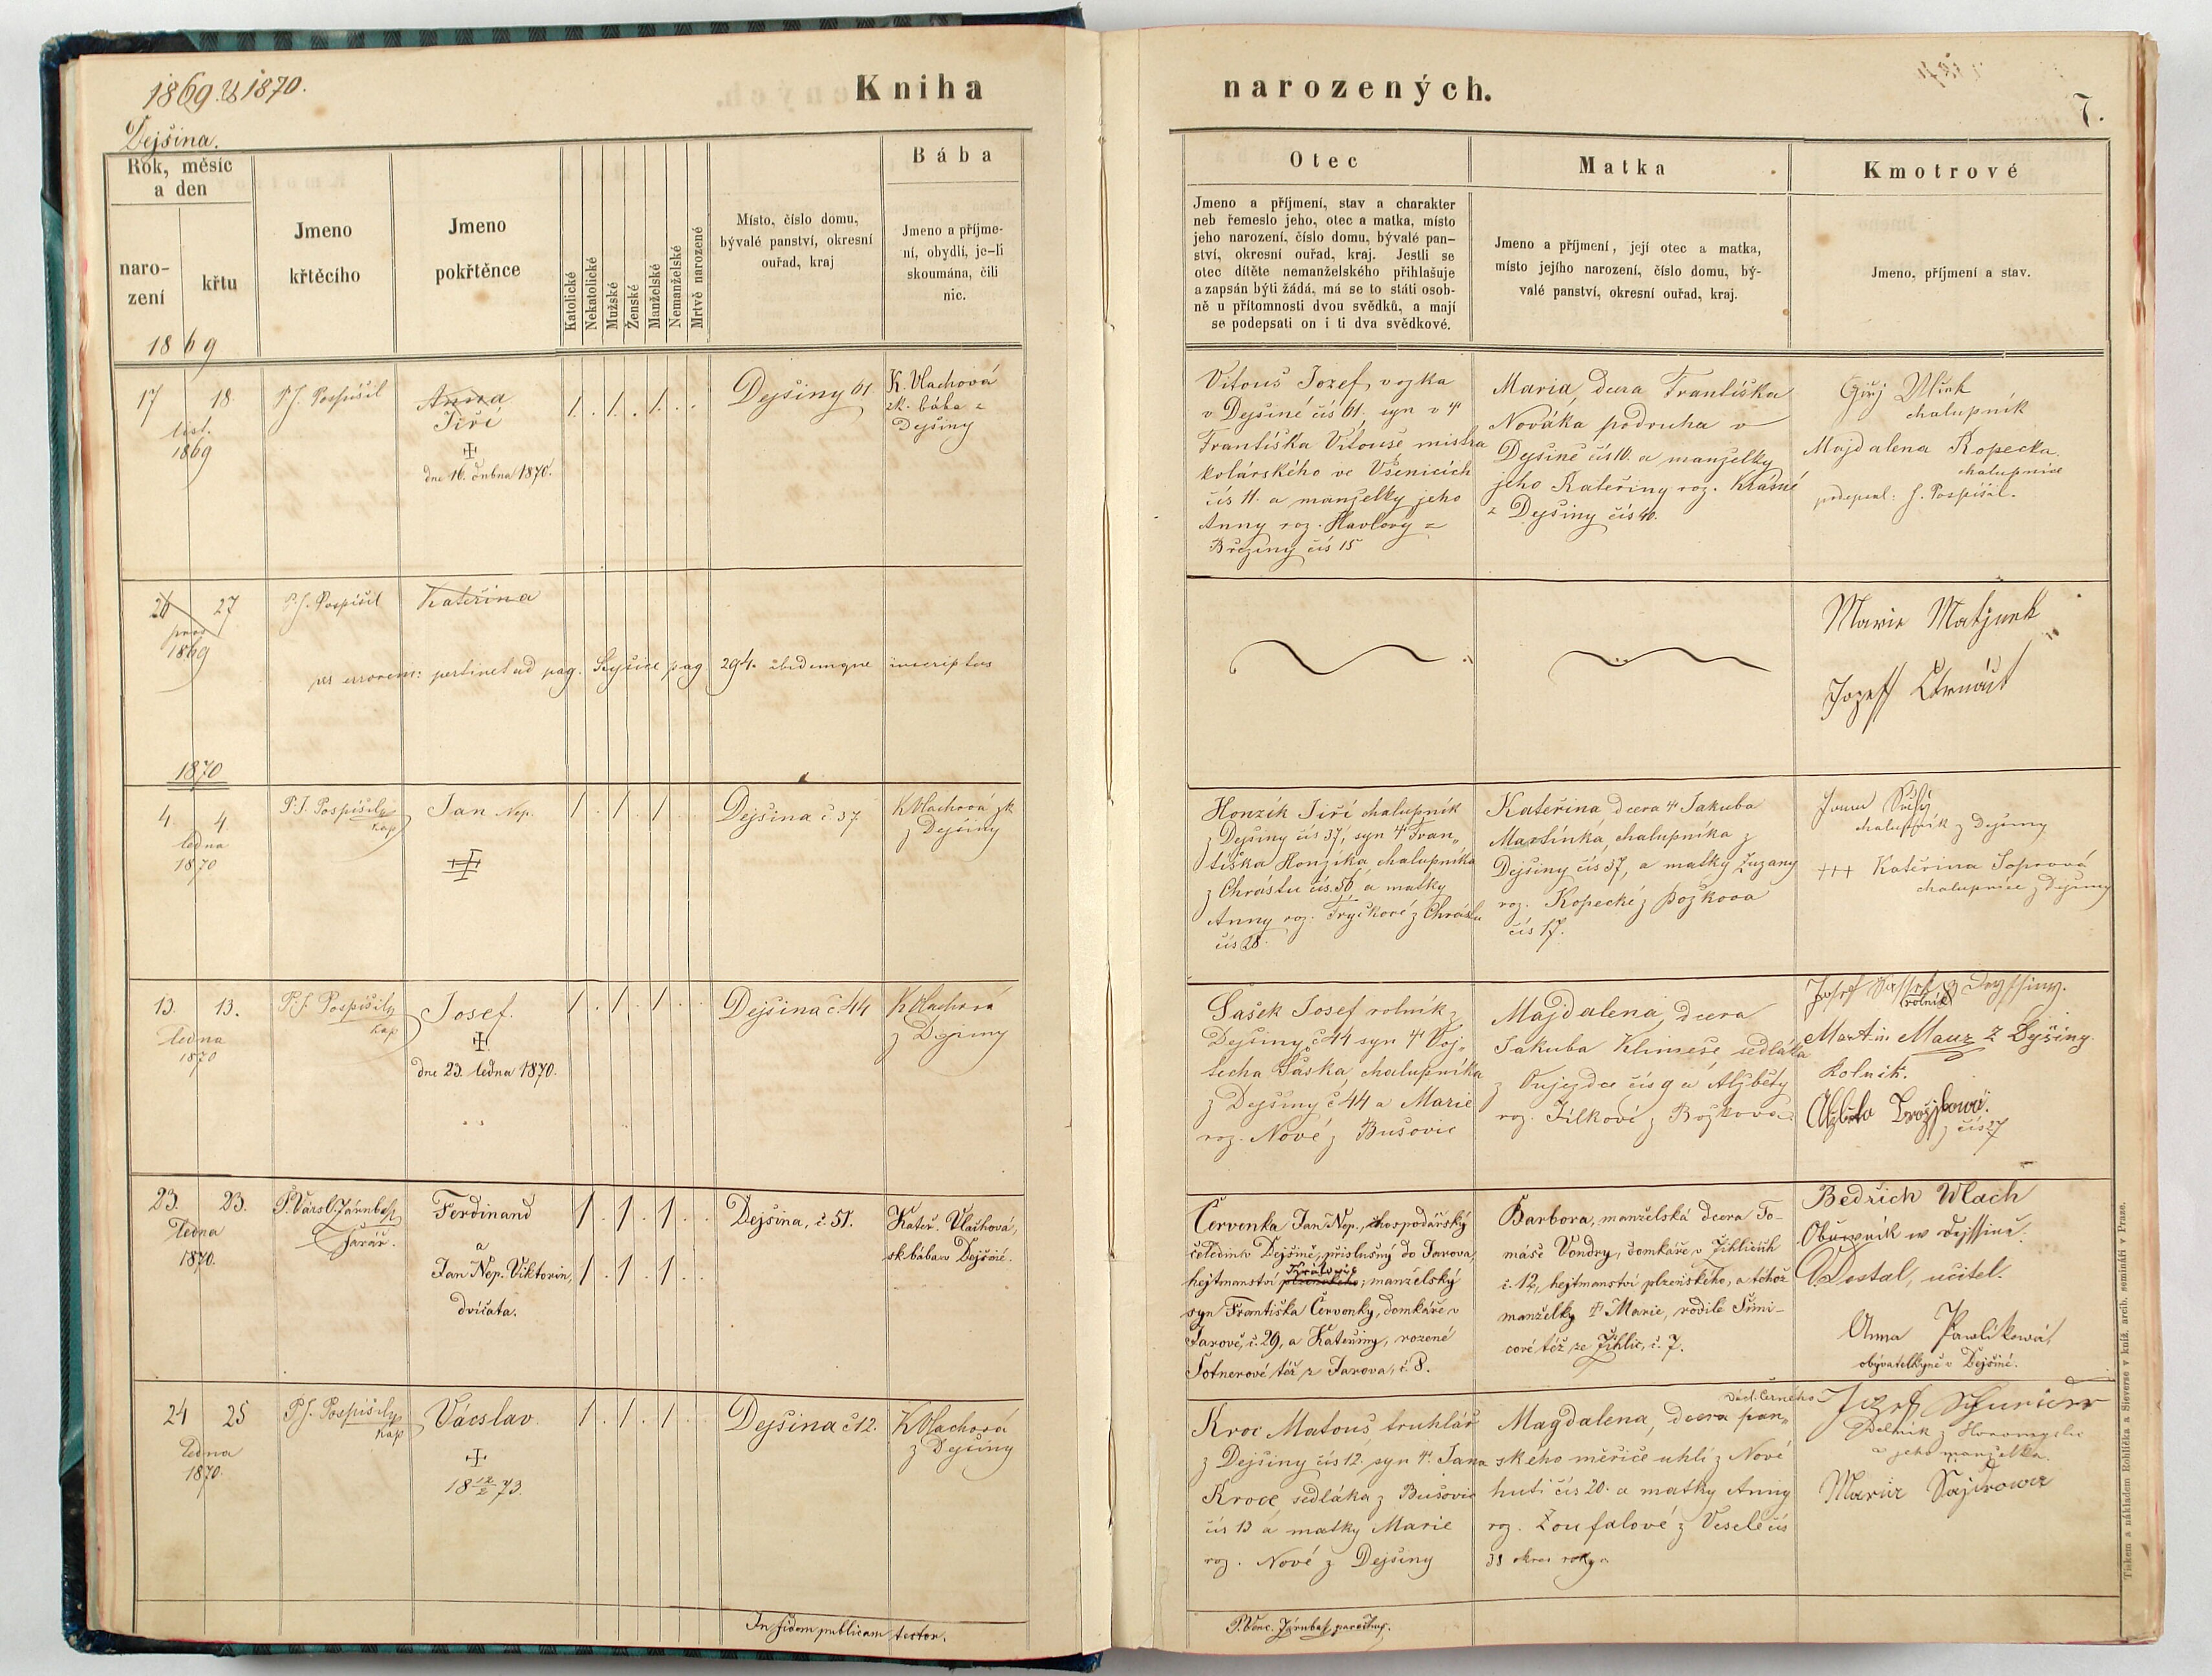 1869. & 1870.
Kniha
narozených.
7.
Dejšina.
Rok, měsíc
a den
naro-
zení
křtu
1869
Jmeno
křtěcího
Jmeno
pokřtěnce
Katolické
Nekatolické
Mužské
Ženské
Manželské
Nemanželské
Mrtvě narozené
Místo, číslo domu,
bývalé panství, okresní
ouřad, kraj
Bába
Jmeno a příjme-
ní, obydlí, je-li
skoumána, čili
nic.
Otec
Jmeno a příjmení, stav a charakter
neb řemeslo jeho, otec a matka, místo
jeho narození, číslo domu, bývalé pan-
ství, okresní ouřad, kraj. Jestli se
otec dítěte nemanželského přihlašuje
a zapsán býti žádá, má se to státi osob-
ně u přítomnosti dvou svědků, a mají
se podepsati on i ti dva svědkové.
Matka
Jmeno a příjmení, její otec a matka,
místo jejího narození, číslo domu, bý-
valé panství, okresní ouřad, kraj.
Kmotrové
Jmeno, příjmení a stav.
17 18
list.
1869
P. J. Pospíšil
Anna
Jiří
dne 16. dubna 1870.
1 . 1 . 1 . .
Dejšiny 61
K. Vlachová
zk. bába z
Dejšiny
Vitouš Jozef, vojka
v Dejšině čís 61. syn v
Františka Vitouše mistra
kolárského ve Všenicích
čís 11. a manželky jeho
Anny roz. Havlovy z
Březiny čís 15
Maria, dcera Františka
Nováka podruha v
Dejšině čís 10. a manželky
jeho Kateřiny roz. Krásné
z Dejšiny čís 40.
Giřj
chalupník
Majdalena Kopecka
chalupnice
podepsal: J. Pospíšil.
26 27
pros
1869
P. J. Pospíšil
Kateřina
per errorem: pertinet ad pag. Kyšice pag 294. ibidemque inscriptus
Marie Matjnek
Jozeff Čtrnáct
1870
4 4
ledna
1870
P. J. Pospíšil
kap
Jan Nep.
1 . 1 . 1 . .
Dejšina č. 37
K Vlachová zk
z Dejšiny
Honzík Jiří chalupník
z Dejšiny čís 37, syn Fran„
tiška Honzíka, chalupníka
z Chrástu čís. 56 a matky
Anny roz. Tryčkové z Chrástu
čís 28.
Kateřina dcera Jakuba
Martínka, chalupníka z
Dejšiny čís 37, a matky Zuzany
roz. Kopecké z Božkova
čís 17.
chalupník z Dejšiny
+++ Kateřina Soprová
chalupnice z Dejšiny
13. 13.
ledna
1870
P. J. Pospíšil
kap
Josef.
dne 23. ledna 1870.
1 . 1 . 1 . .
Dejšina č. 44
K Vlachová
z Dejšiny
Šašek Josef rolník z
Dejšiny č 44 syn Voj„
těcha Šáska, chalupníka
z Dejšiny č 44 a Marie
roz. Nové z Bušovic
Majdalena, dcera
Jakuba Klimeše sedláka
z Oujezdce čís 9 a Alžběty
roz. Jílkové z Božkova.
Josef Z Deyssiny.
rolník
Martin Mauz z Dyšiny
Rolnik.
z čís 27
23. 23.
ledna
1870.
farář.
Ferdinand
a
Jan Nep. Viktorin,
dvíčata.
1 . 1 . 1 . .
1 . 1 . 1 . .
Dejšina, č. 51.
Kateř. Vlachová,
zk bába v Dejšině.
Červenka Jan Nep., hospodářský
čeledín v Dejšině, příslušný do Jarova,
Králowic
hejtmanství plzenského; manželský
syn Františka Červenky, domkáře v
Jarově, č. 29, a Kateřiny, rozené
Fotnerové též z Jarova, č. 8.
Barbora, manželská dcera To-
máše Vondry, domkáře v Jihlicích
č. 12, hejtmanství plzeňského, a téhož
manželky Marie, rodilé Šimi-
cové též ze Jihlic, č. 7.
Bedřich Wlach
Obuwník w Dejssině.
Dostal, učitel.
Anna Pawlikowá
obývatelkyně v Dejšině.
24 25
ledna
1870.
P. J. Pospíšil
kap
Vácslav.
73.
1 . 1 . 1 . .
Dejšina č 12.
K Vlachová
z Dejšiny
Kroc Matouš truhlář
z Dejšiny čís 12. syn Jana
Kroce, sedláka z Bušovic
čís 13 a matky Marie
roz. Nové z Dejšiny
Magdalena, dcera pan„
ského měřiče uhlí z Nové
huti čís 20. a matky Anny
roz. Zoufalové z Veselé čís
Jozef
Dělník z Horomyslic
a jeho manželka.
Marie
In fidem publicam testor.
P. Venc. Járnbaf, parochus.
Tiskem a nákladem Rohlíčka a Sieverse v kníž. arcib. semináři v Praze.